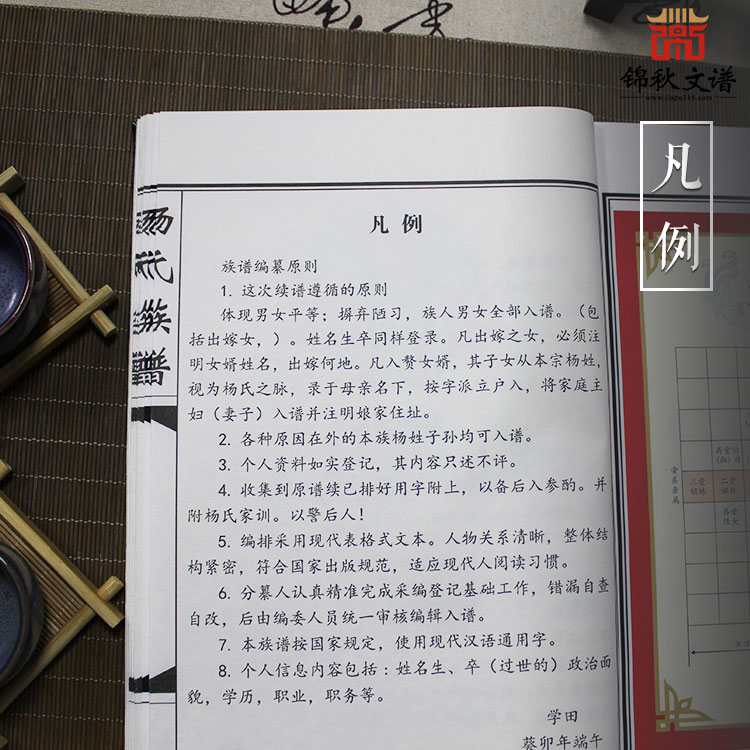 锦秋文谱
www.jiapu315.com
凡例
杨氏族谱
凡 例
族谱编纂原则
1. 这次续谱遵循的原则
体现男女平等；摒弃陋习，族人男女全部入谱。（包
括出嫁女，）。姓名生卒同样登录。凡出嫁之女，必须注
明女婿姓名，出嫁何地。凡入赘女婿，其子女从本宗杨姓，
视为杨氏之脉，录于母亲名下，按字派立户入，将家庭主
妇（妻子）入谱并注明娘家住址。
2. 各种原因在外的本族杨姓子孙均可入谱。
3. 个人资料如实登记，其内容只述不评。
4. 收集到原谱续已排好用字附上，以备后入参酌。并
附杨氏家训。以警后人！
5. 编排采用现代表格式文本。人物关系清晰，整体结
构紧密，符合国家出版规范，适应现代人阅读习惯。
6. 分纂人认真精准完成采编登记基础工作，错漏自查
自改，后由编委人员统一审核编辑入谱。
7. 本族谱按国家规定，使用现代汉语通用字。
8. 个人信息内容包括：姓名生、卒（过世的）政治面
貌，学历，职业，职务等。
学田
葵卯年端午
三堂
姐妹
二堂
姐妹